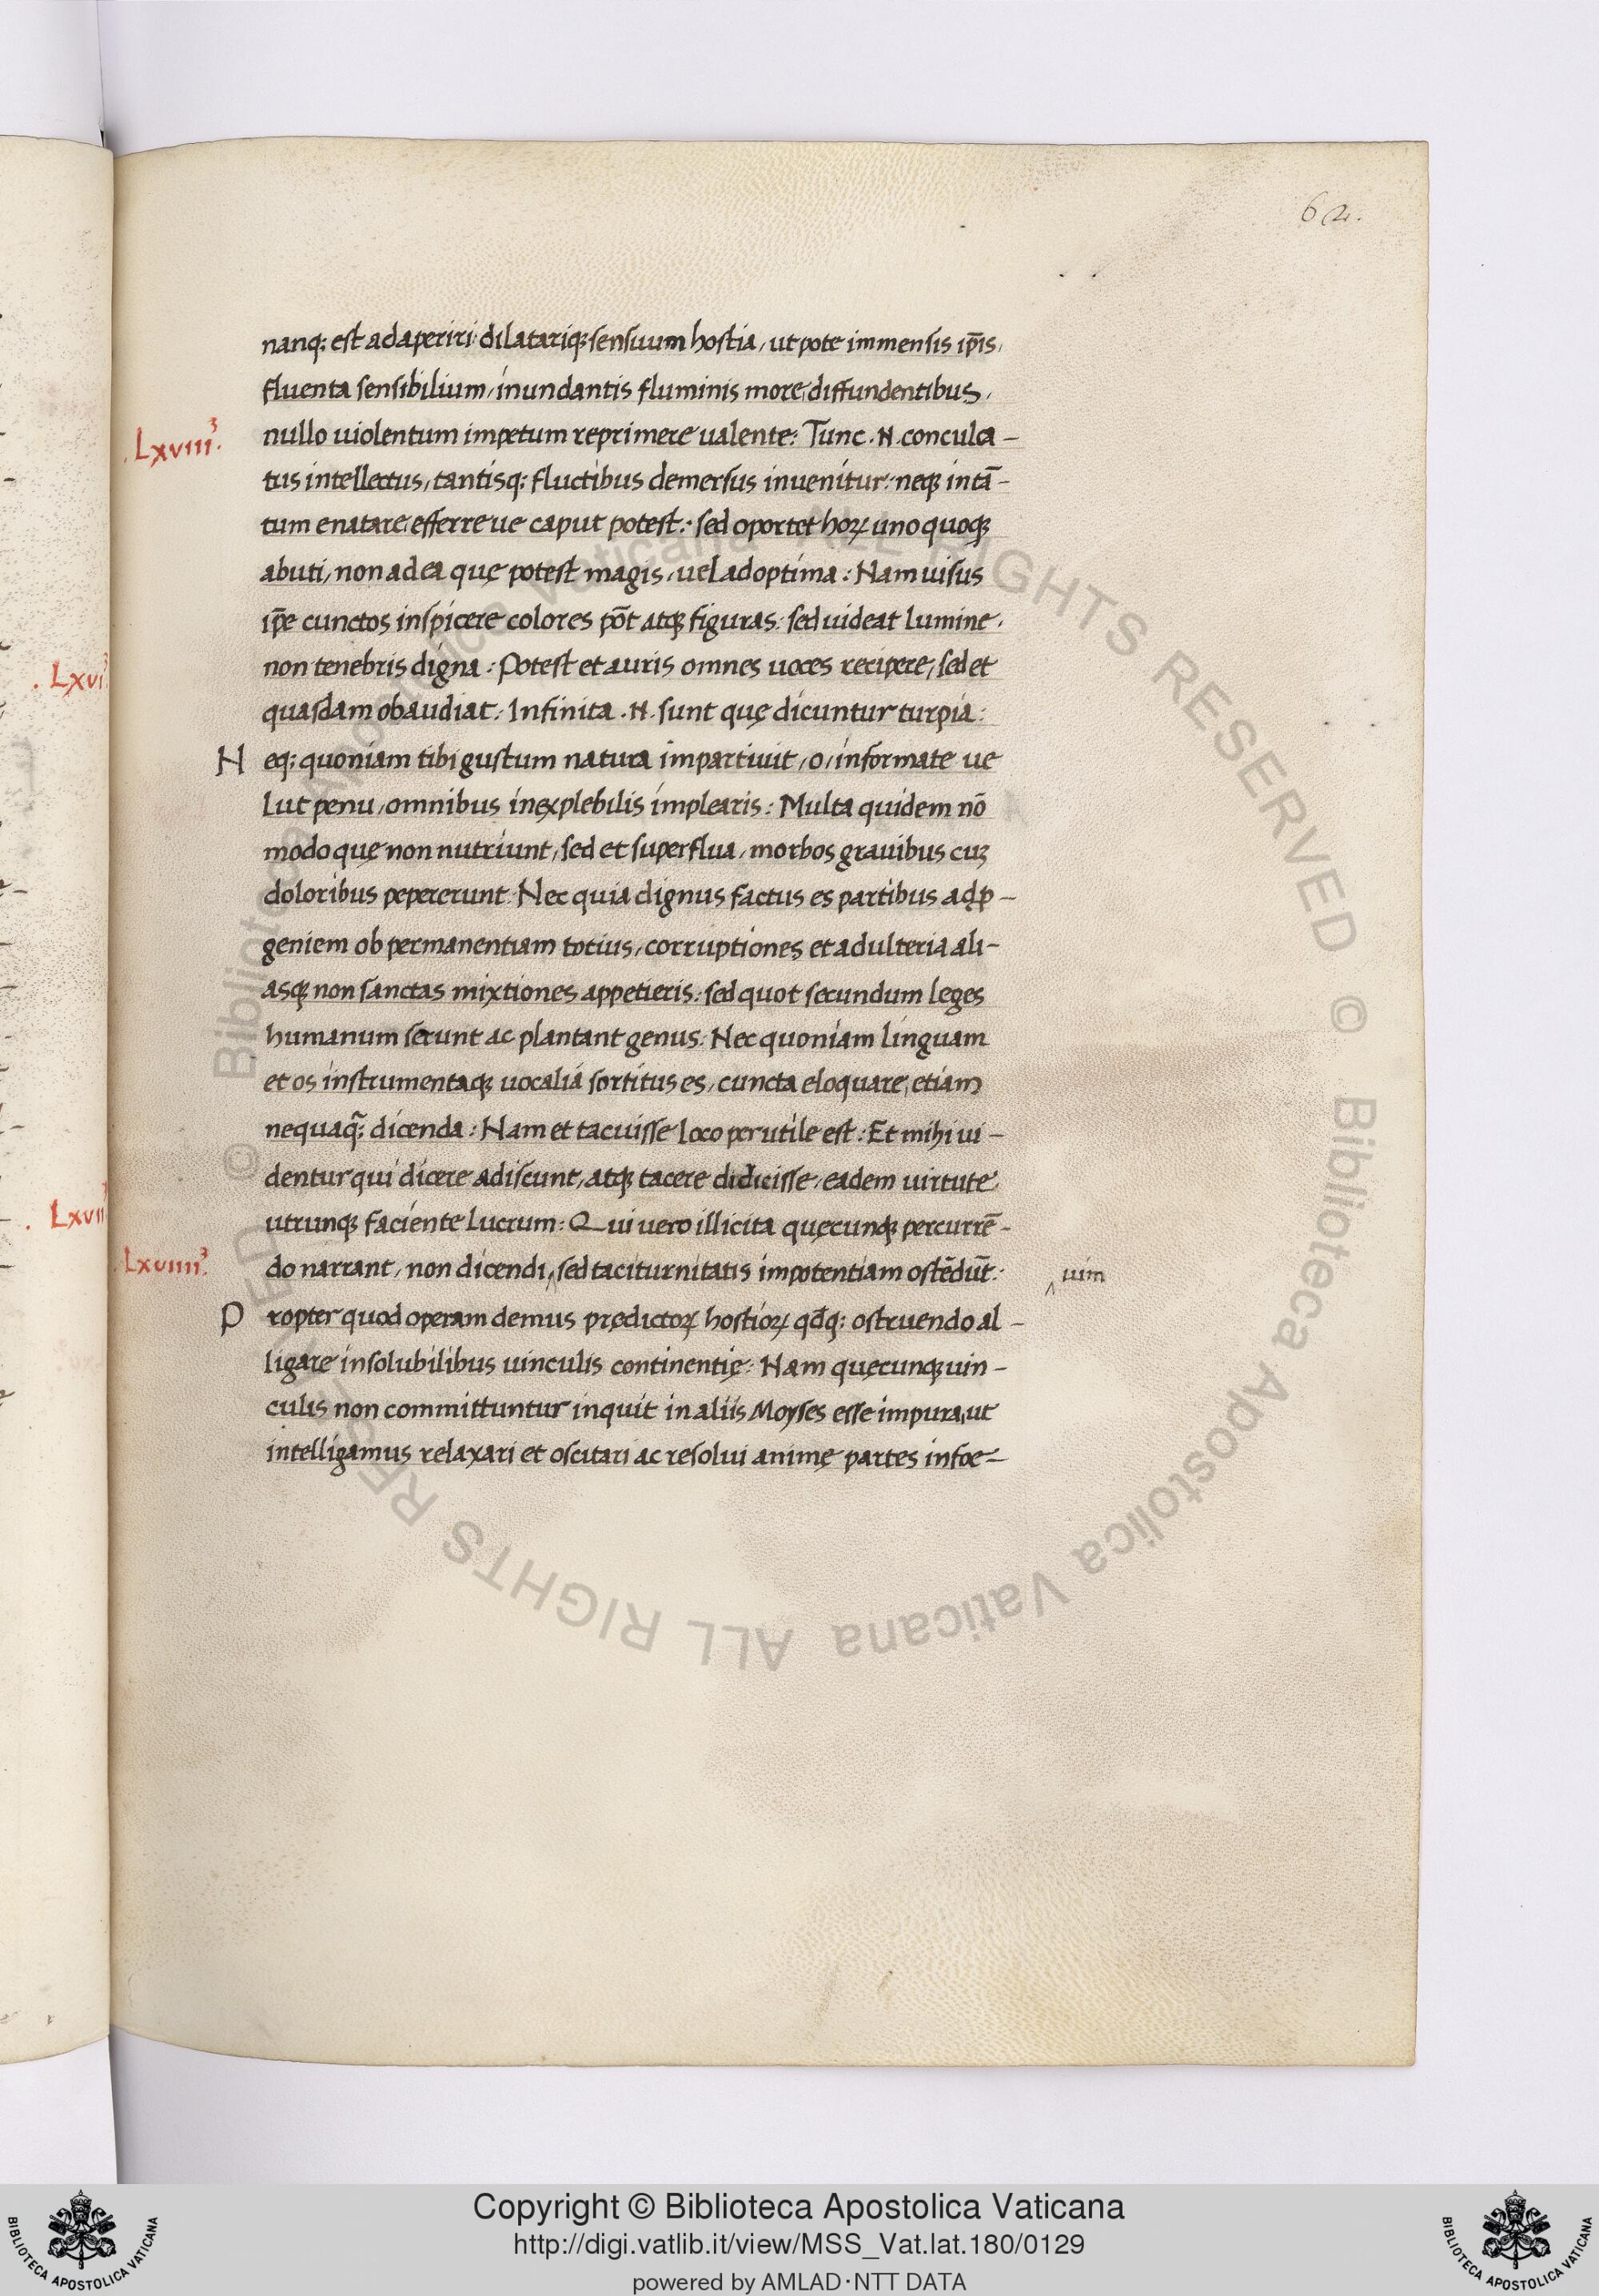 62.
nanq; est adaperiri dilatariq; sensuum hostia, utpote immensis ip̄is,
fluenta sensibilium, inundantis fluminis more, diffundentibus,
.Lxviii³. nullo uiolentum impetum reprimere ualente: Tunc .N. conculca-
tus intellectus, tantisq; fluctibus demersus inuenitur: neq; intā-
tum enatare efferreue caput potest: sed oportet hoꝝ unoquoq;
abuti, non ad ea quę potest magis, uel ad optima: Nam uisus
ip̄e cunctos inspicere colores pōt atq; figuras: sed uideat lumine.
non tenebris digna: Potest et auris omnes uoces recipere, sed et
. Lxvi³ quasdam obaudiat: Infinita .N. sunt quę dicuntur turpia:
Neq; quoniam tibi gustum natura impartiuit, o, informate ue
lut penu, omnibus inexplebilis implearis: Multa quidem nō
modo quę non nutriunt, sed et superflua, morbos grauibus cuꝫ
doloribus pepererunt: Nec quia dignus factus es partibus ad ꝓ-
geniem ob permanentiam totius, corruptiones et adulteria ali-
asq; non sanctas mixtiones appetieris: sed quot secundum leges
humanum serunt ac plantant genus: Nec quoniam linguam
et os instrumentaq; uocalia sortitus es, cuncta eloquare, etiam
nequaq̄; dicenda: Nam et tacuisse loco perutile est: Et mihi ui-
dentur qui dicere adiscunt, atq; tacere didicisse, eadem uirtute
. Lxvii utrunq; faciente lucrum: Qui uero illicita quęcunq; percurrē-
.Lxviiii³. do narrant, non dicendi, sed taciturnitatis impotentiam ostēdūt: uim
Propter quod operam demus prędictoꝝ hostioꝝ qd̄q; ostruendo al-
ligare insolubilibus uinculis continentię: Nam quęcunq; uin-
culis non committuntur inquit in aliis Moyses esse impura, ut
intelligamus relaxari et oscitari ac resolui animę partes infoe-
© Biblioteca Apostolica Vaticana ALL RIGHTS RESERVED © Biblioteca Apostolica Vaticana ALL RIGHTS RESERVED
Copyright © Biblioteca Apostolica Vaticana
http://digi.vatlib.it/view/MSS_Vat.lat.180/0129
powered by AMLAD·NTT DATA
BIBLIOTECA APOSTOLICA VATICANA
BIBLIOTECA APOSTOLICA VATICANA